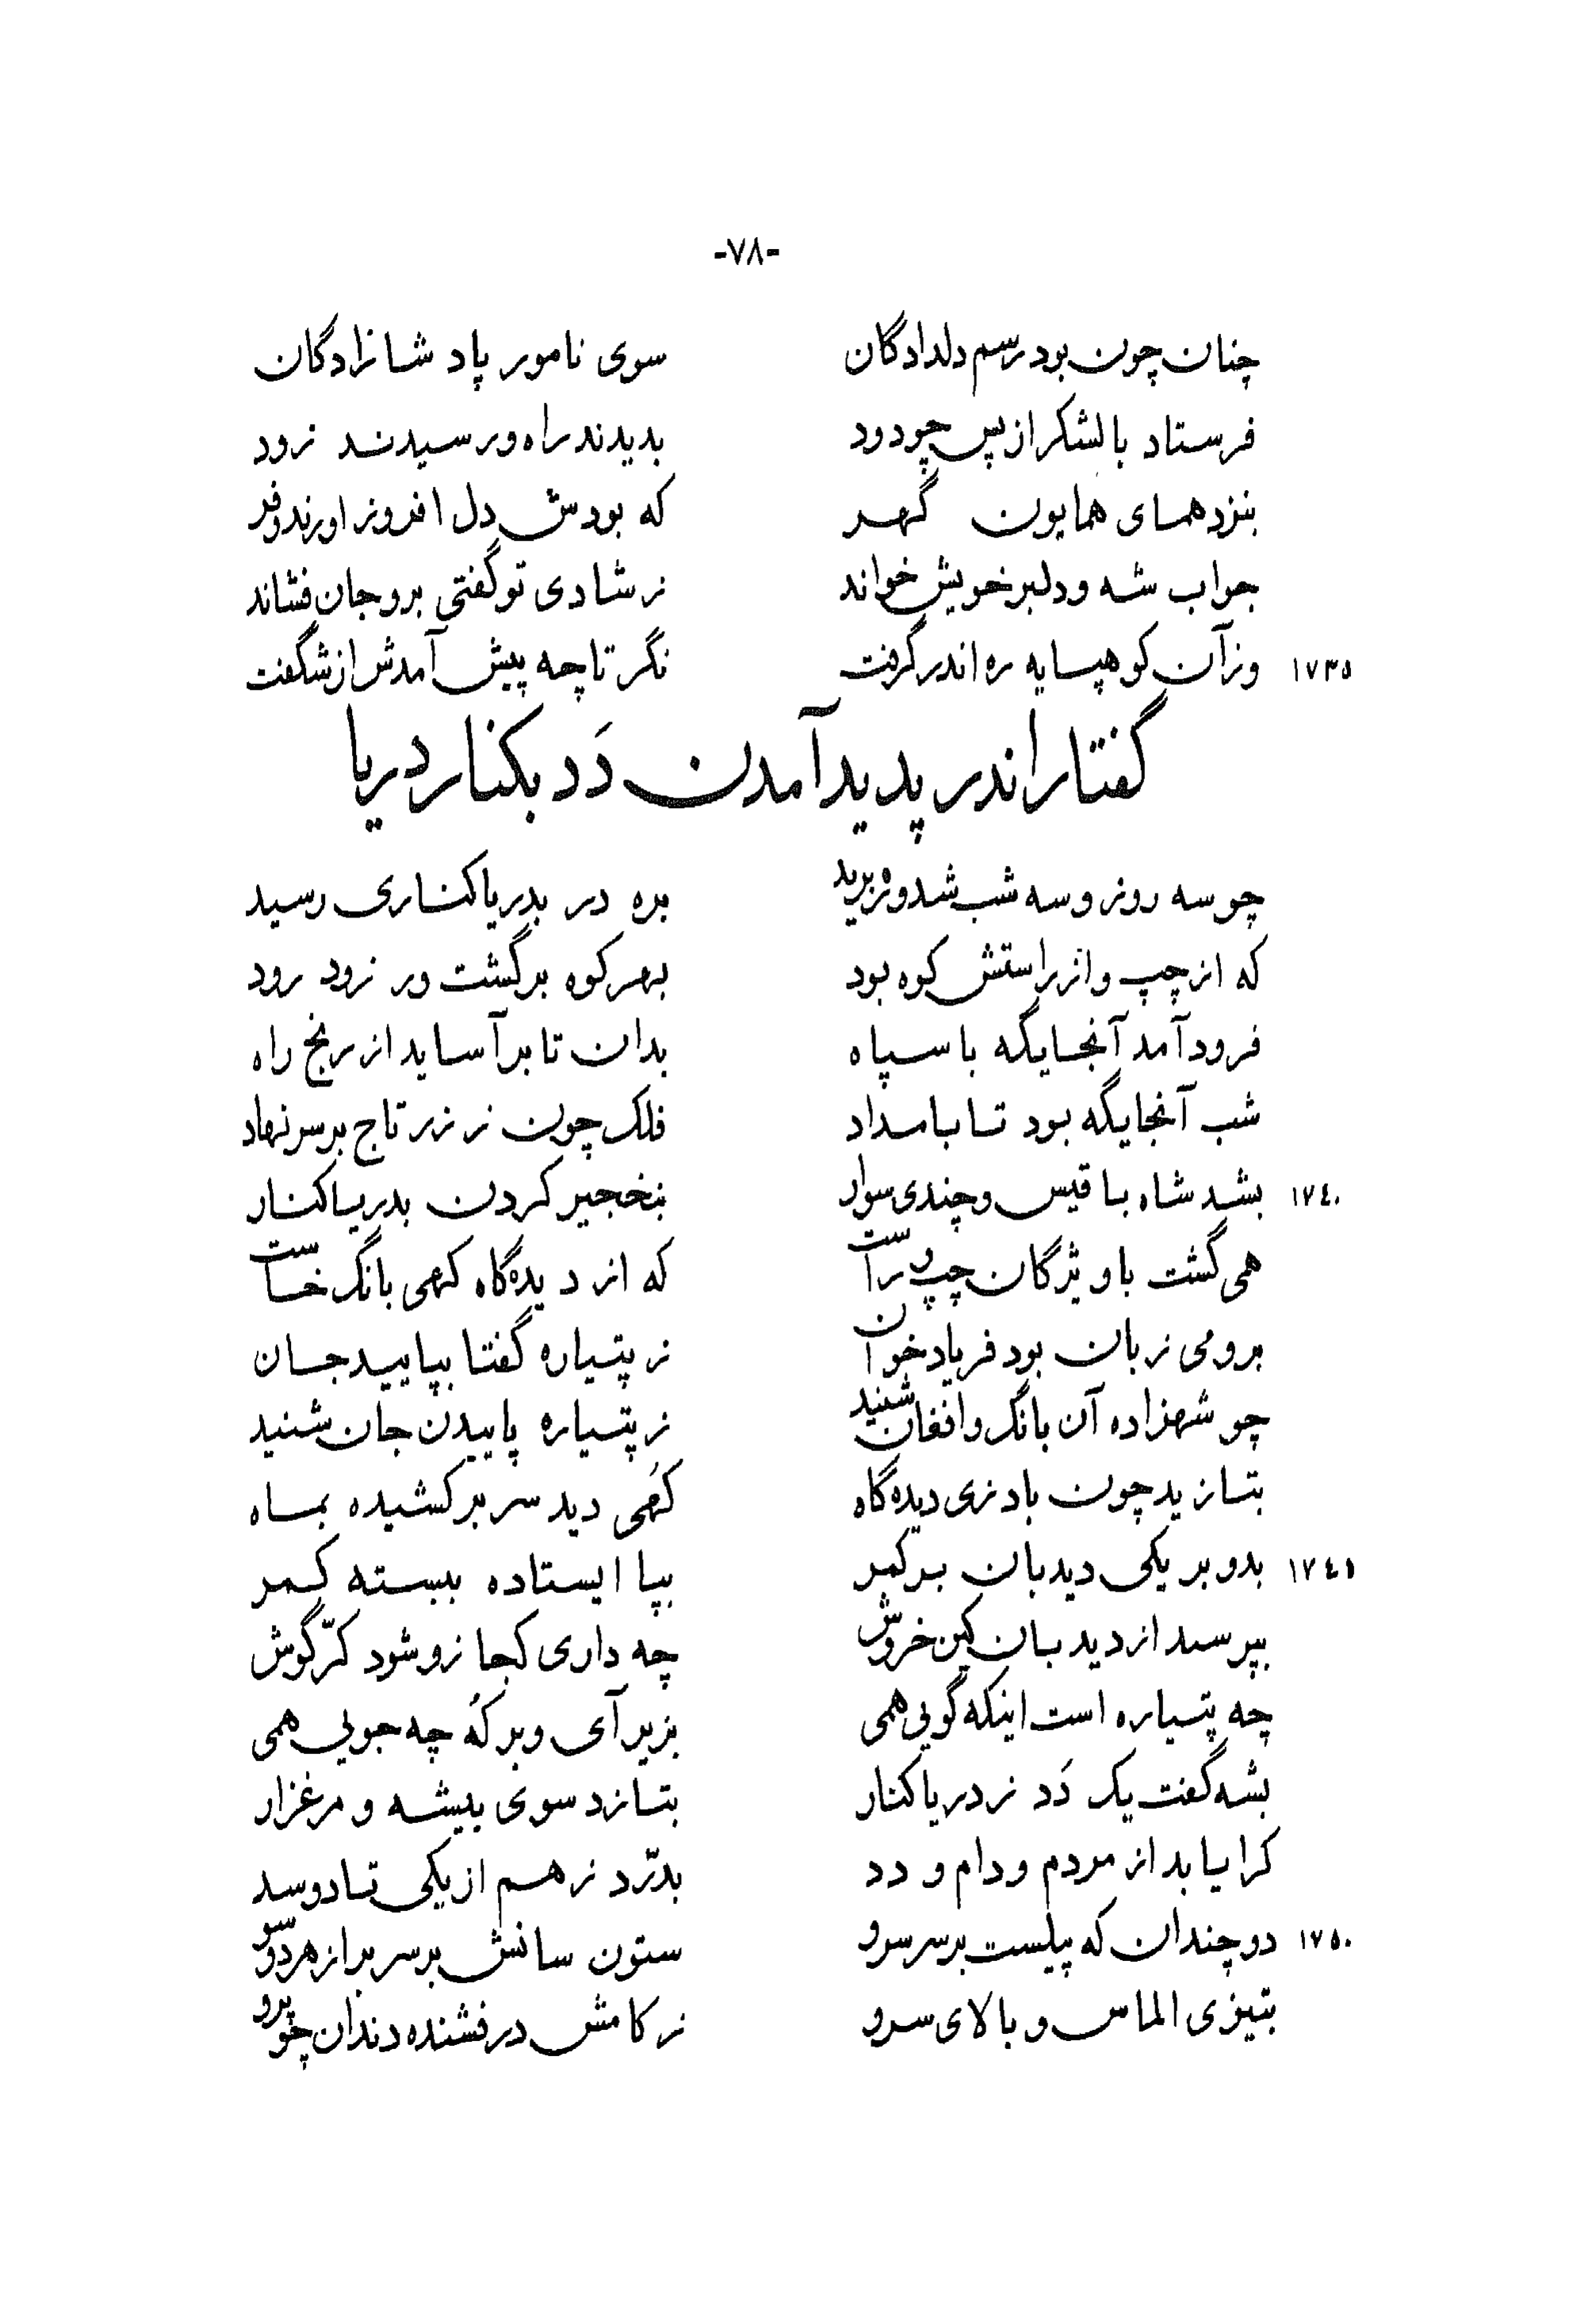 -۷۸-
چنان چون بود رسم دلدادگان سوی نامور پاد شازادگان
فرستاد با لشکر از پس چو دود بدیدند راه و رسیدند زود
بنزد همای همایون گهر که بودش دل افروز اورند و فر
جواب شه و دلبر خویش خواند ز شادی تو گفتی برو جان فشاند
۱۷۳۵ وز آن کوهپایه ره اندر گرفت نگر تا چه پیش آمدش از شگفت
گفتار اندر پدید آمدن دَد بکنار دریا
چو سه روز و سه شب شد و ره برید بره در بدریا کناری رسید
که از چپ و از راستش کوه بود بهر کوه بر گشت ور زود رود
فرود آمد آنجایگه با سپاه بدان تا بر آساید از رنج راه
شب آنجایگه بود تا بامداد فلک چون ز زر تاج بر سر نهاد
۱۷٤۰ بشد شاه با قیس و چندی سوار بنخجیر کردن بدریا کنار
همی گشت با ویژگان چپ و راست که از دیده‌گاه کهی بانگ خاست
برومی زبان بود فریاد خوان ز پتیاره گفتا بپایید جان
چو شهزاده آن بانگ و افغان شنید ز پتیاره پاییدن جان شنید
بتازید چون باد زی دیده‌گاه کُهی دید سر بر کشیده بماه
۱۷٤۵ بدو بر یکی دیدبان بر کمر بپا ایستاده ببسته کمر
بپرسد از دیدبان کین خروش چه داری کجا زو شود کرّ گوش
چه پتیاره است اینکه گویی همی بزیر آی و بر کُه چه جویی همی
بشه گفت یک دَد ز دریا کنار بتازد سوی بیشه و مرغزار
کرا یابد از مردم و دام و دد بدرّد ز هم از یکی تا دوسد
۱۷۵۰ دو چندان که پیلست بر سر سرو ستون سانش بر سر بر از هر دو سو
بتیزی الماس و بالای سرو ز کامش درفشنده دندان چو پرو